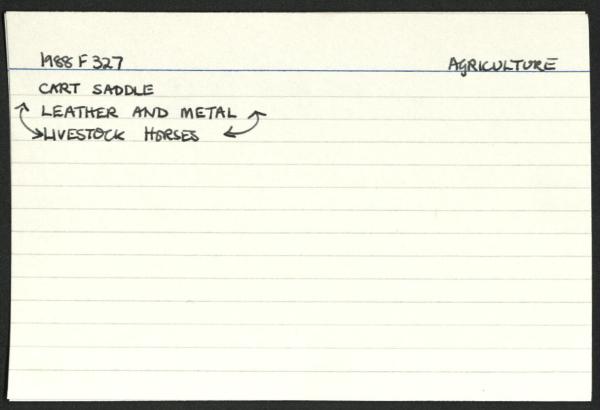 1988 F 327 AGRICULTURE
CART SADDLE
LEATHER AND METAL
LIVESTOCK HORSES